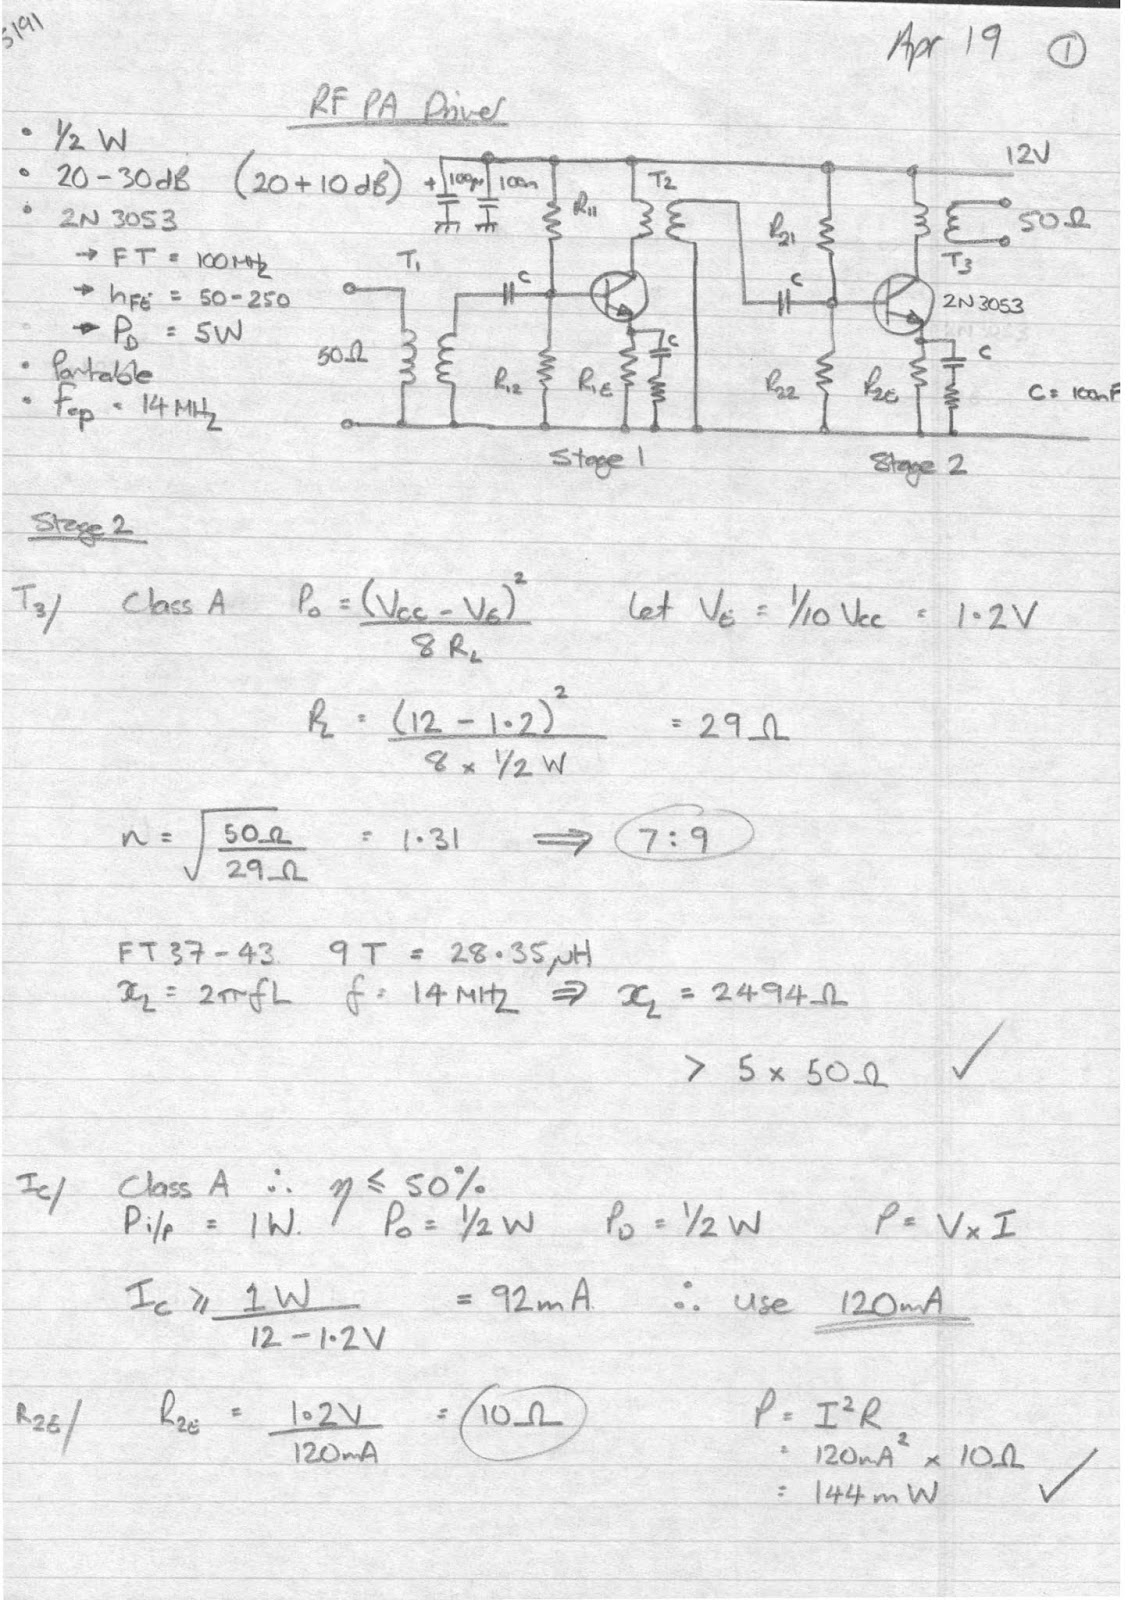 5191
Apr 19 ①
RF PA Driver
• 1/2 W
• 20 - 30dB (20 + 10 dB)
• 2N 3053
→ FT = 100MHz
→ hFE = 50 - 250
→ PD = 5W
• Portable
• Fop = 14 MHz
12V
+ 100µ 100n
R11
T2
R21
50Ω
T3
T1
C
C
2N3053
50Ω
R12
R1E
C
R22
R2E
C
C = 100nF
Stage 1
Stage 2
Stage 2
T3/ Class A Po = (Vcc - VE)² / 8 RL Let VE = 1/10 Vcc = 1.2V
RL = (12 - 1.2)² / 8 x 1/2 W = 29Ω
n = √ 50Ω / 29Ω = 1.31 ⟹ 7:9
FT37-43 9T = 28.35µH
xL = 2πfL f = 14 MHz ⇒ xL = 2494Ω
> 5 x 50Ω ✓
Ic/ Class A ∴ η ≤ 50%
Pi/p = 1W. Po = 1/2 W PD = 1/2 W P = V x I
Ic ≥ 1W / 12 - 1.2V = 92mA. ∴ use 120mA
R2E/ R2E = 1.2V / 120mA = 10Ω
P = I²R
= 120mA² x 10Ω
= 144mW ✓